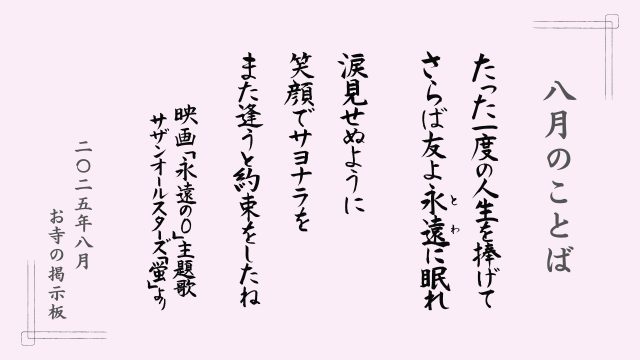 八月のことば
たった一度の人生を捧げて
さらば友よ永遠に眠れ
とわ
涙見せぬように
笑顔でサヨナラを
また逢うと約束をしたね
映画「永遠の０」主題歌
サザンオールスターズ「蛍」より
二〇二五年八月
お寺の掲示板